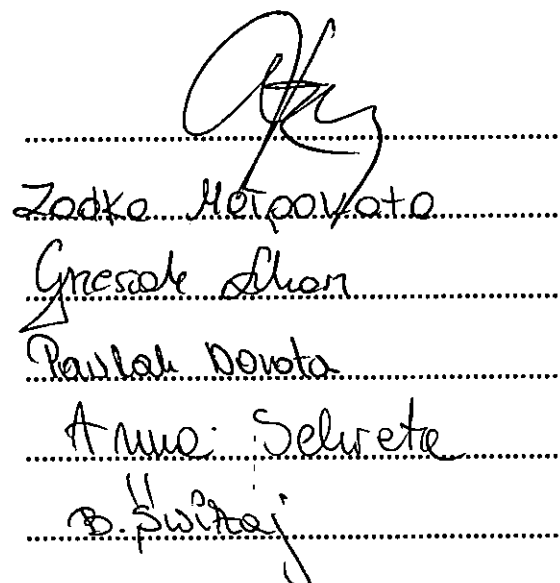 Zadka Małgorzata
Grzesiak
Pawlak Dorota
Anna Sekreta
B. Świtaj